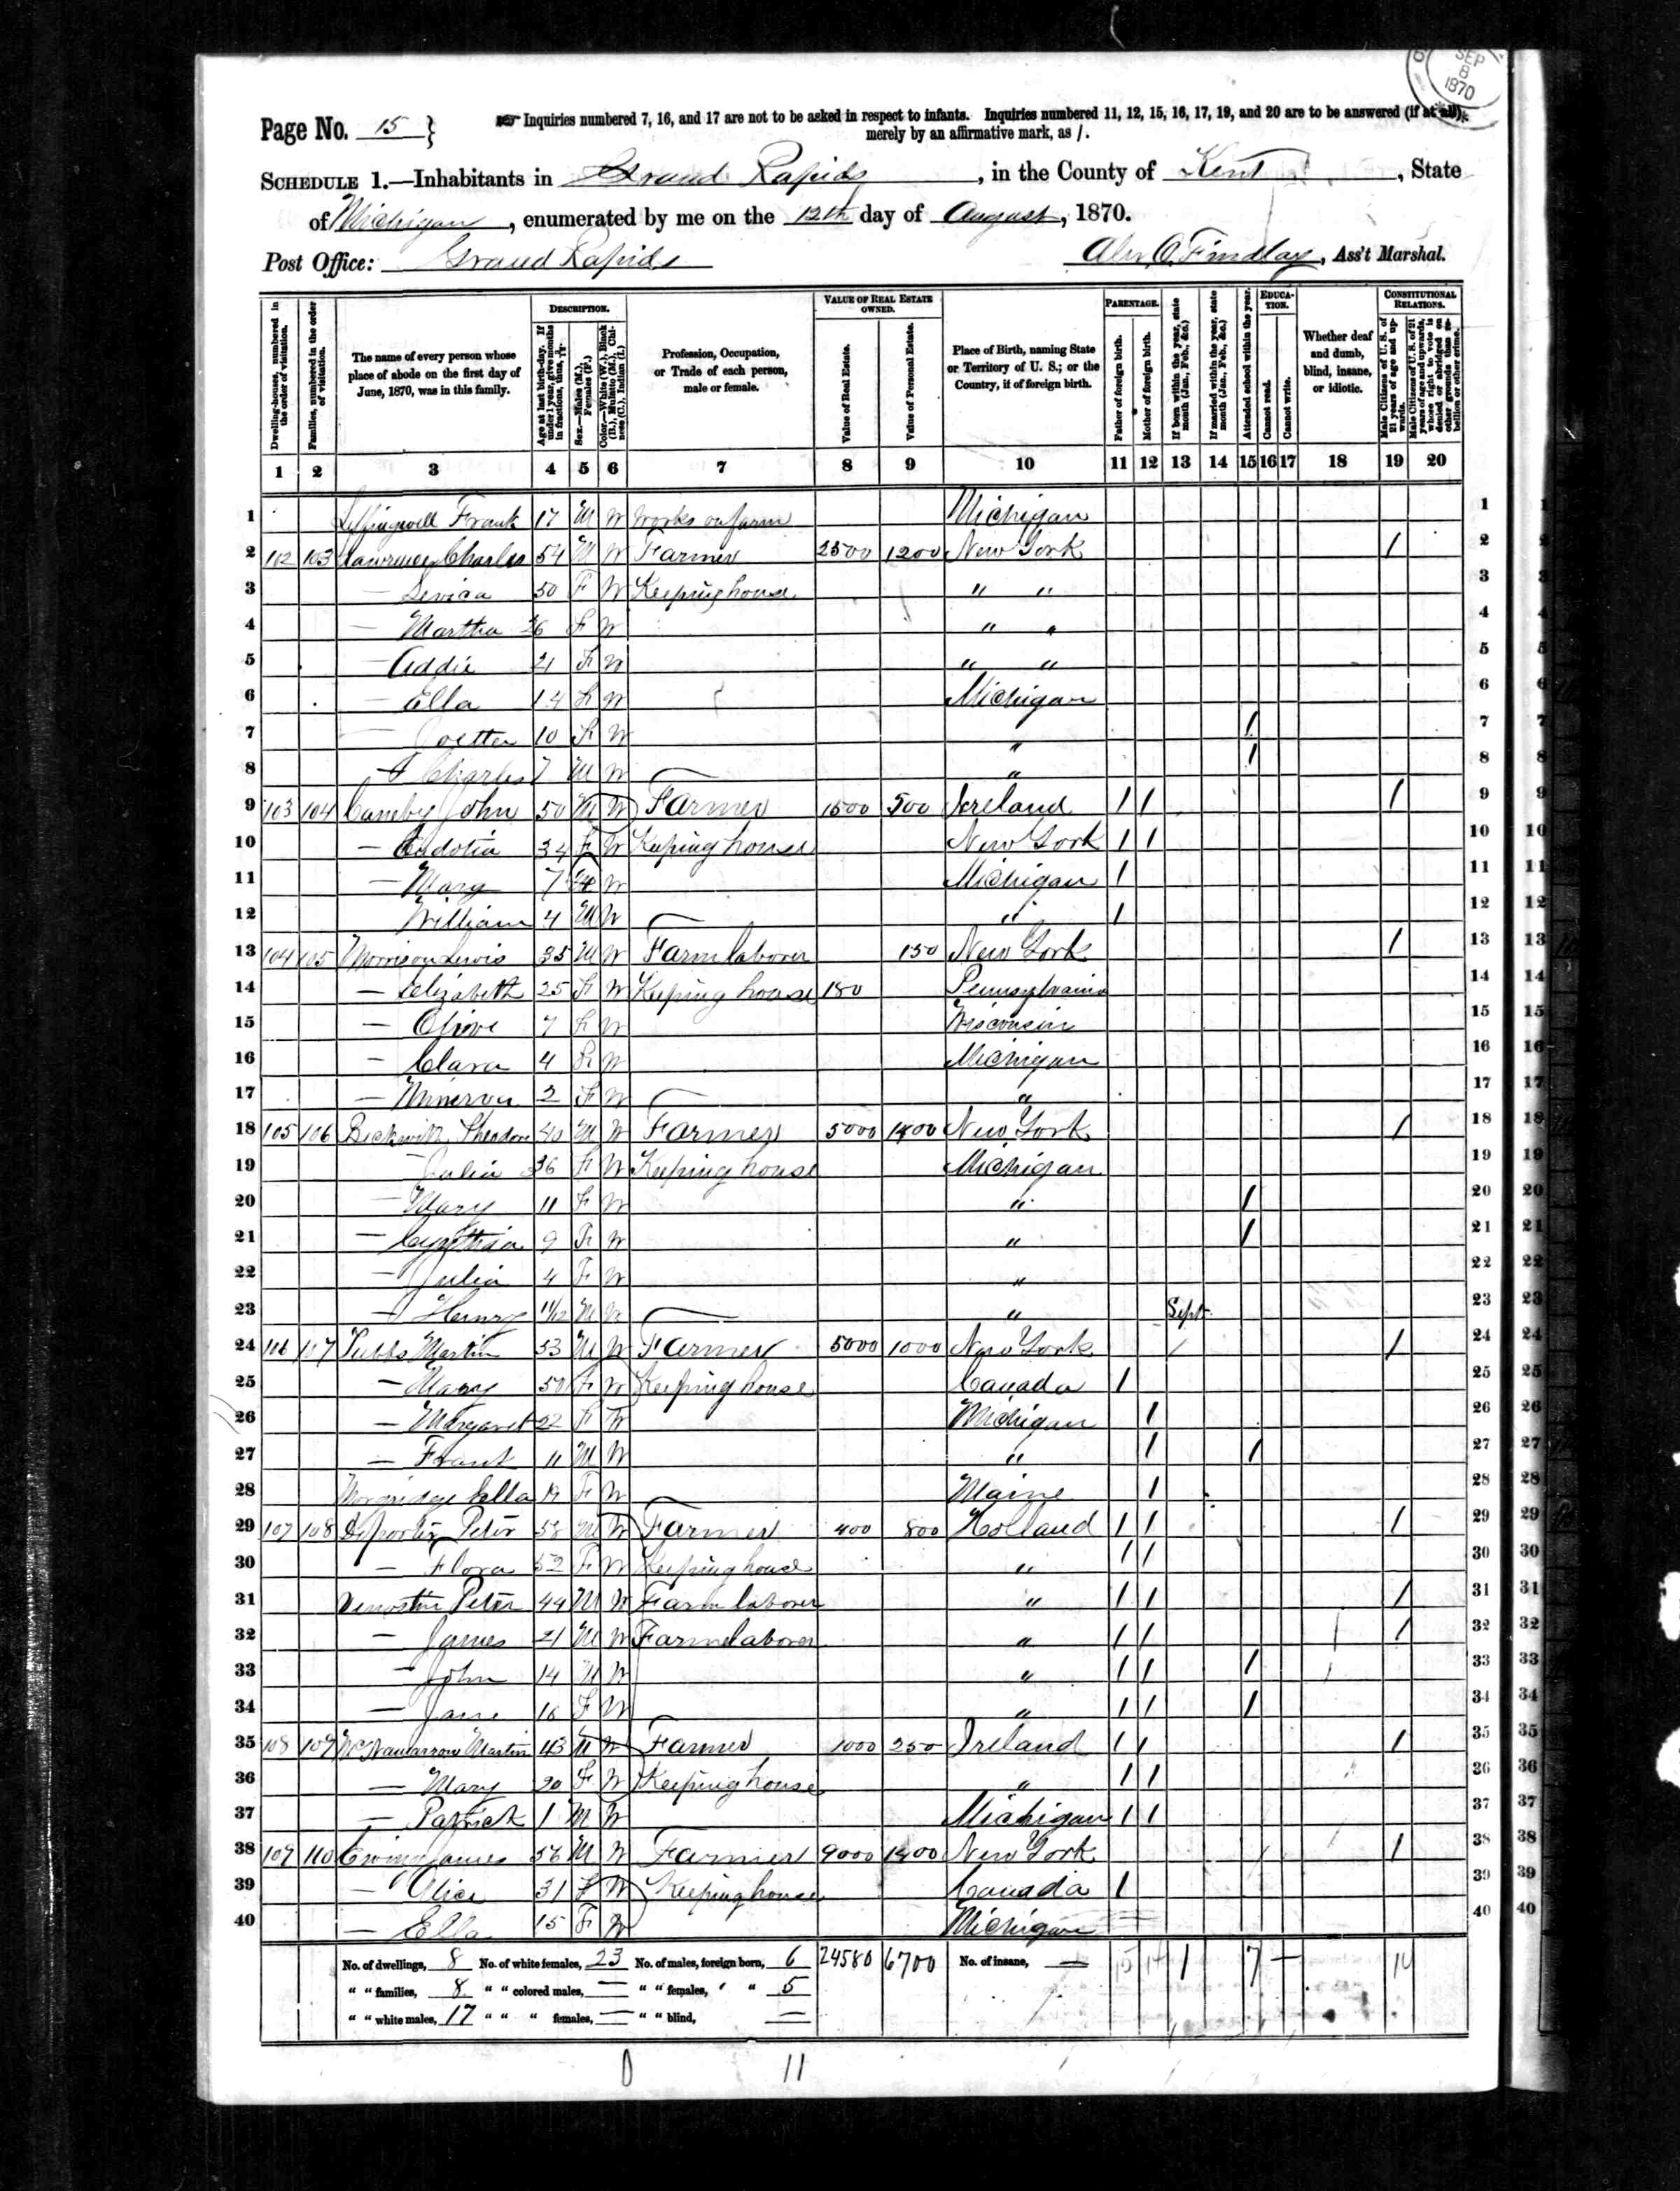 SEP
8
1870
Page No. 15 }
Inquiries numbered 7, 16, and 17 are not to be asked in respect to infants. Inquiries numbered 11, 12, 15, 16, 17, 19, and 20 are to be answered (if at all)
merely by an affirmative mark, as /.
SCHEDULE 1.—Inhabitants in Grand Rapids, in the County of Kent, State
of Michigan, enumerated by me on the 12th day of August, 1870.
Post Office: Grand Rapids
Findlay, Ass't Marshal.
Dwelling-houses, numbered in the order of visitation.
Families, numbered in the order of visitation.
The name of every person whose place of abode on the first day of June, 1870, was in this family.
DESCRIPTION.
Age at last birth-day. If under 1 year, give months in fractions, thus,
Sex.—Males (M.), Females (F.)
Color.—White (W.), Black (B.), Mulatto (M.), Chinese (C.), Indian (I.)
Profession, Occupation, or Trade of each person, male or female.
VALUE OF REAL ESTATE OWNED.
Value of Real Estate.
Value of Personal Estate.
Place of Birth, naming State or Territory of U. S.; or the Country, if of foreign birth.
PARENTAGE.
Father of foreign birth.
Mother of foreign birth.
If born within the year, state month (Jan., Feb., &c.)
If married within the year, state month (Jan., Feb., &c.)
Attended school within the year.
EDUCATION.
Cannot read.
Cannot write.
Whether deaf and dumb, blind, insane, or idiotic.
CONSTITUTIONAL RELATIONS.
Male Citizens of U. S. of 21 years of age and upwards.
Male Citizens of U. S. of 21 years of age and upwards, whose right to vote is denied or abridged on other grounds than rebellion or other crime.
1 2 3 4 5 6 7 8 9 10 11 12 13 14 15 16 17 18 19 20
1 Leffingwell Frank 17 M W Works on farm Michigan 1
2 102 103 Charles 54 M W Farmer 2500 1200 New York / 2
3 — 50 F W Keeping house " " 3
4 — Martha 26 F W " " 4
5 — Addie 21 F W " " 5
6 — Ella 14 F W Michigan 6
7 — 10 F W " / 7
8 — Charles 7 M W " / 8
9 103 104 John 50 M W Farmer 1500 500 Ireland / / / 9
10 — 34 F W Keeping house New York / / 10
11 — Mary 7 F W Michigan / 11
12 William 4 M W " / 12
13 104 105 Morrison Lewis 35 M W Farm laborer 150 New York / 13
14 — Elizabeth 25 F W Keeping house 180 Pennsylvania 14
15 — Olive 7 F W Wisconsin 15
16 — Clara 4 F W Michigan 16
17 — Minerva 2 F W " 17
18 105 106 Beckwith Theodore 40 M W Farmer 5000 1400 New York / 18
19 — Julia 36 F W Keeping house Michigan 19
20 — Mary 11 F W " / 20
21 — Cynthia 9 F W " / 21
22 — Julia 4 F W " 22
23 — Henry 11/12 M W " Sept 23
24 106 107 Tubbs Martin 53 M W Farmer 5000 1000 New York / 24
25 — Mary 50 F W Keeping house Canada / 25
26 — Margaret 22 F W Michigan / 26
27 — Frank 11 M W " / / 27
28 Ella 19 F W Maine / 28
29 107 108 Peter 58 M W Farmer 400 800 Holland / / / 29
30 — Flora 52 F W Keeping house " / / 30
31 Peter 44 M W Farm laborer " / / / 31
32 — James 21 M W Farm laborer " / / / 32
33 — John 14 M W " / / / 33
34 — Jane 16 F W " / / / 34
35 108 109 Martin 43 M W Farmer 1000 250 Ireland / / / 35
36 — Mary 20 F W Keeping house " / / 36
37 — Patrick 1 M W Michigan / / 37
38 109 110 Ewing James 56 M W Farmer 9000 1400 New York / 38
39 — Alice 31 F W Keeping house Canada / 39
40 — Ella 15 F W Michigan 40
No. of dwellings, 8 No. of white females, 23 No. of males, foreign born, 6 24580 6700 No. of insane, — 15 14 1 7 — 10
" " families, 8 " " colored males, — " " females, " " 5
" " white males, 17 " " " females, — " " blind, —
11